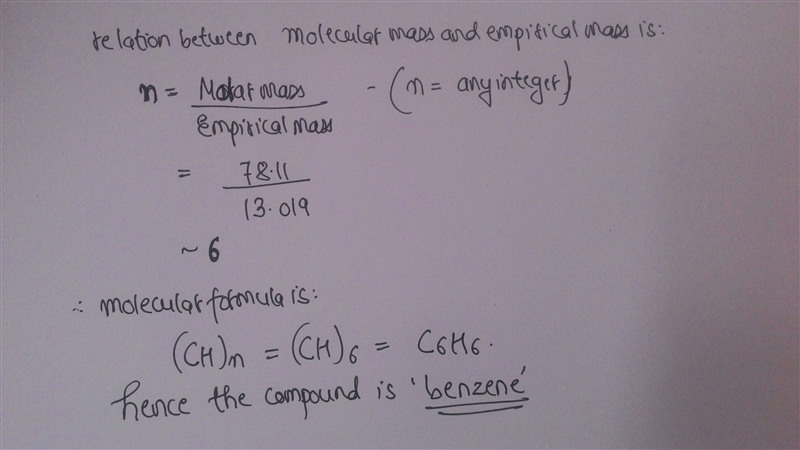 relation between molecular mass and empirical mass is:
n = Molar mass / Empirical mass - (n = any integer)
= 78.11 / 13.019
~ 6
∴ molecular formula is:
(CH)n = (CH)6 = C6H6.
hence the compound is 'benzene'